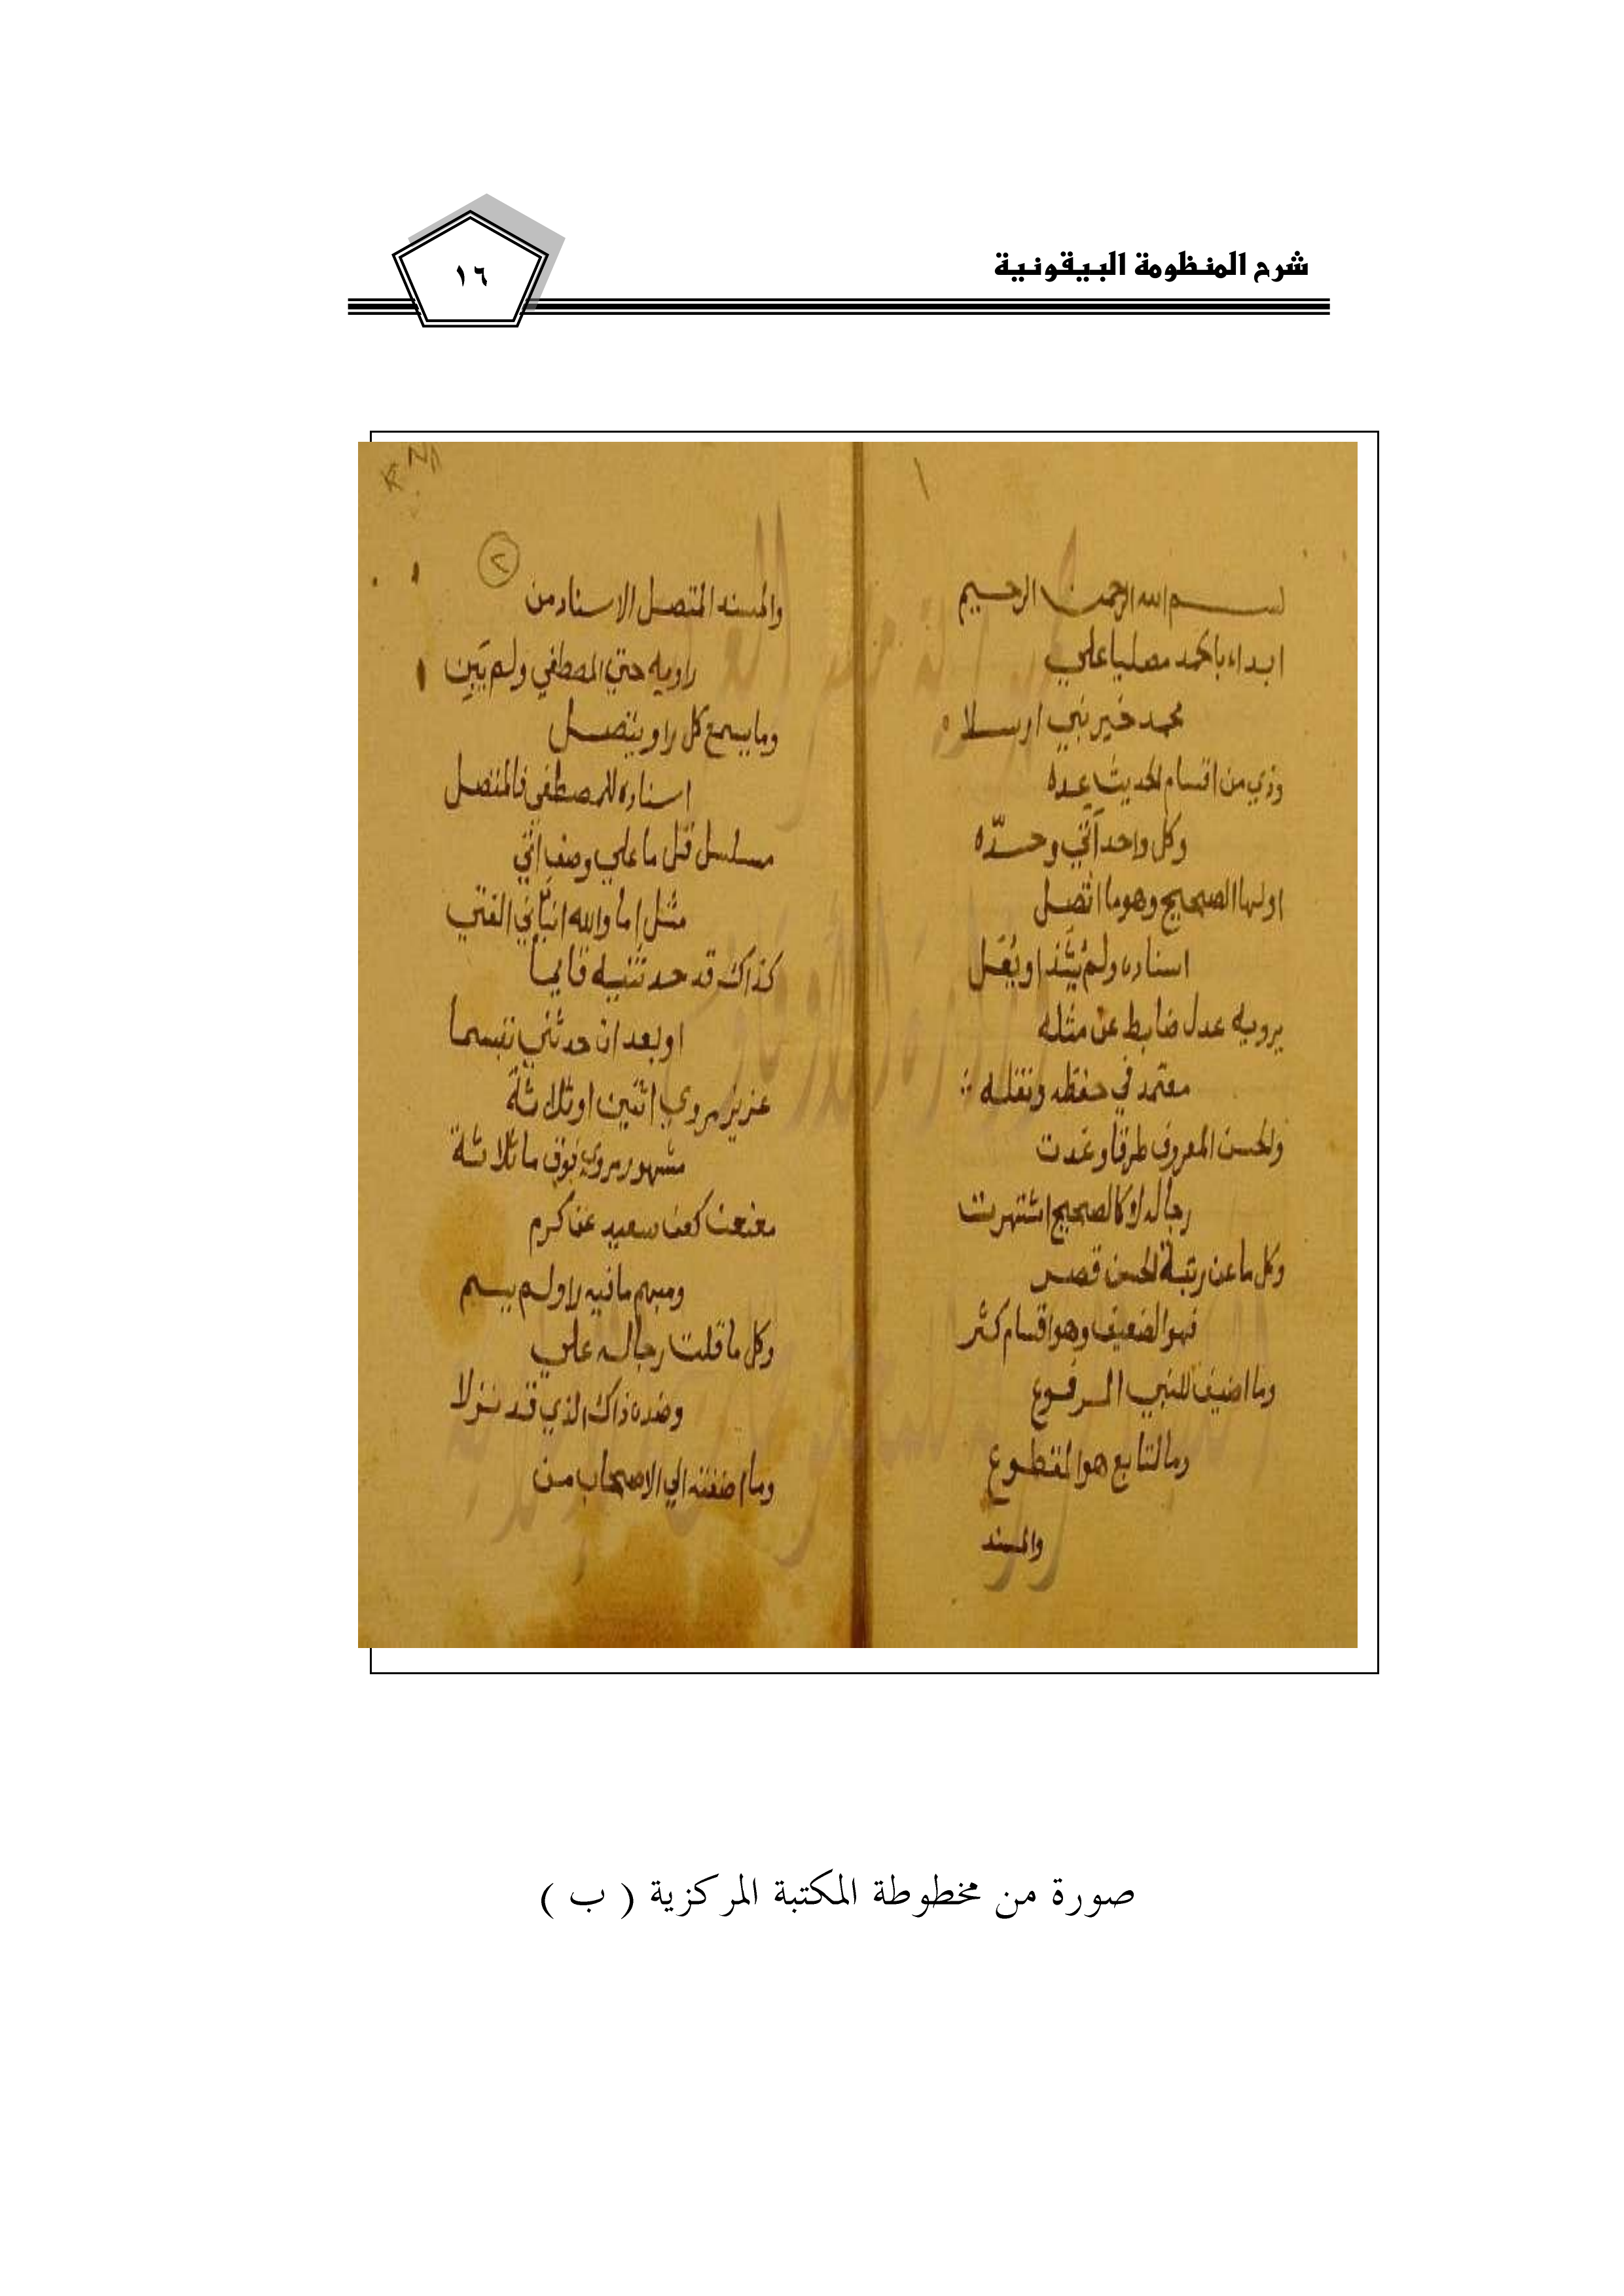 شرح المنظومة البيقونية
١٦
١
بسم الله الرحمن الرحيم
ابداء باكمد مصليا علي
محمد خير نبي ارسلا
وذي من اقسام الحديث عده
وكل واحد اتي وحدّه
اولها الصحيح وهو ما اتصل
اسناده ولم يشذ او يعل
يرويه عدل ضابط عن مثله
معتمد في حفظه ونقله
والحسن المعروف طرقا وغدت
رجاله لا كالصحيح اشتهرت
وكل ما عن رتبة الحسن قصر
فهو الضعيف وهو اقسام كثر
وما اضيف للنبي المرفوع
وما لتابع هو المقطوع
والمسند
٢
والمسند المتصل الاسناد من
راويه حتي المصطفي ولم يَبِن
وما يسمع كل راو يتصل
اسناده للمصطفي فالمتصل
مسلسل قل ما علي وصف اتي
مثل اما والله انبأني الفتي
كذاك قد حدثنيه قايما
او بعد ان حدثني تبسما
عزيز مروي اثنين او ثلاثة
مشهور مروي فوق ما ثلاثة
معنعن كعن سعيد عن كرم
ومبهم ما فيه راو لم يسم
وكل ما قلت رجاله علي
وضده ذاك الذي قد نزلا
وما اضفته الي الاصحاب من
صورة من مخطوطة المكتبة المركزية ( ب )